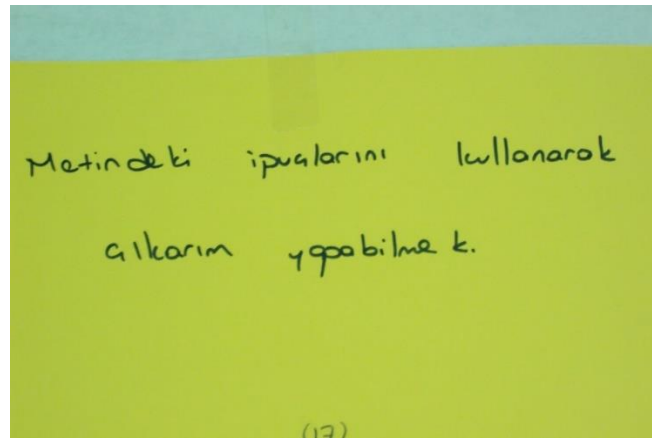 Metindeki ipuçlarını kullanarak
çıkarım yapabilmek.
(17)